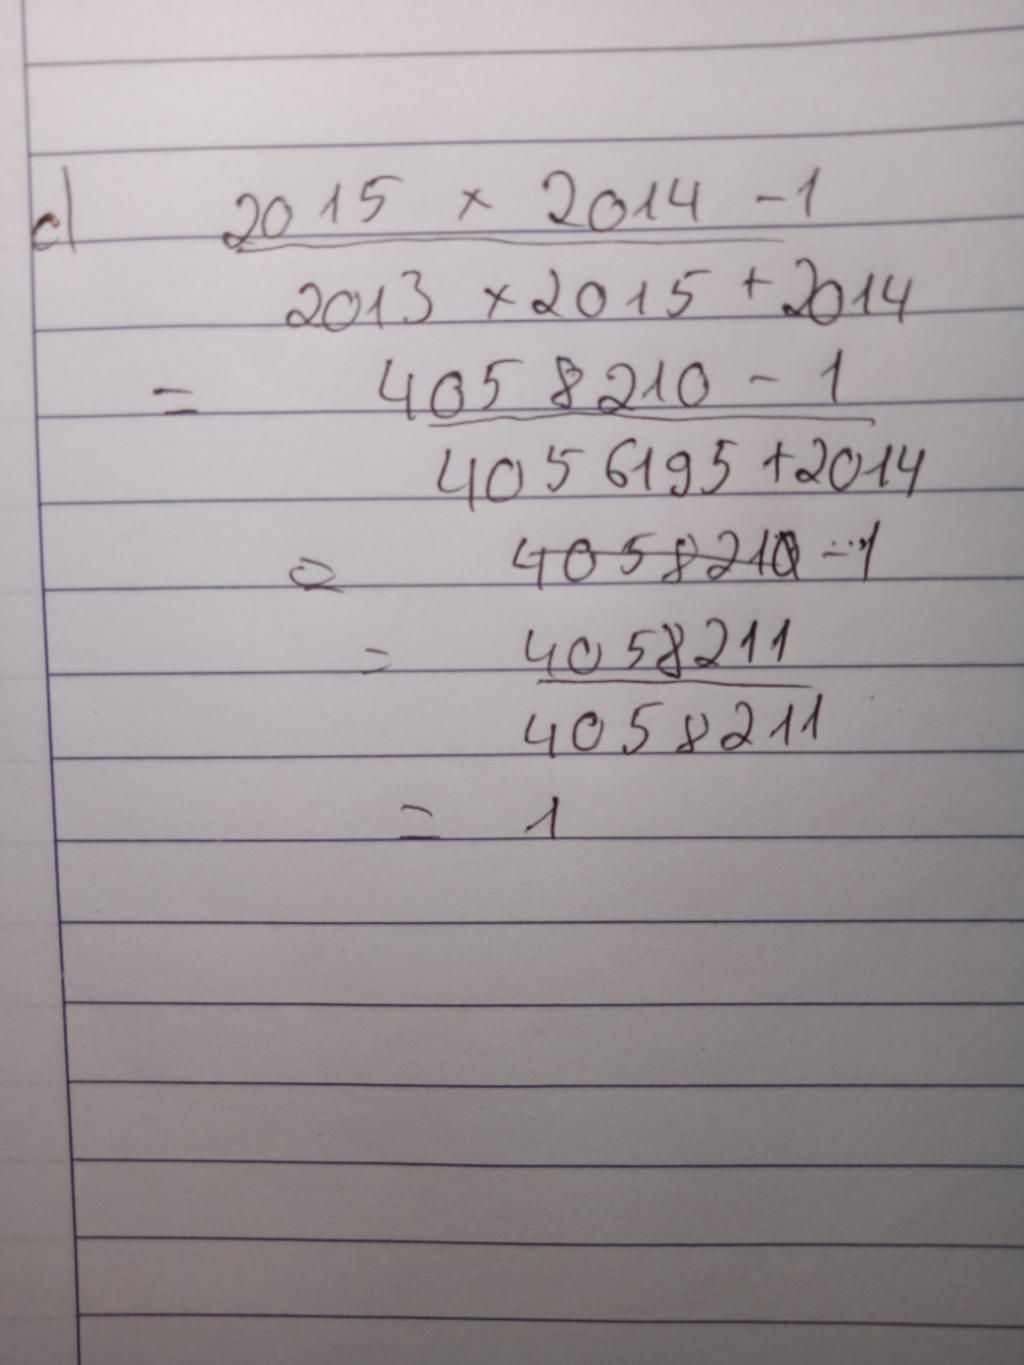 d) 2015 × 2014 - 1
2013 × 2015 + 2014
= 4058210 - 1
4056195 + 2014
= 4058210 - 1
= 4058211
4058211
= 1